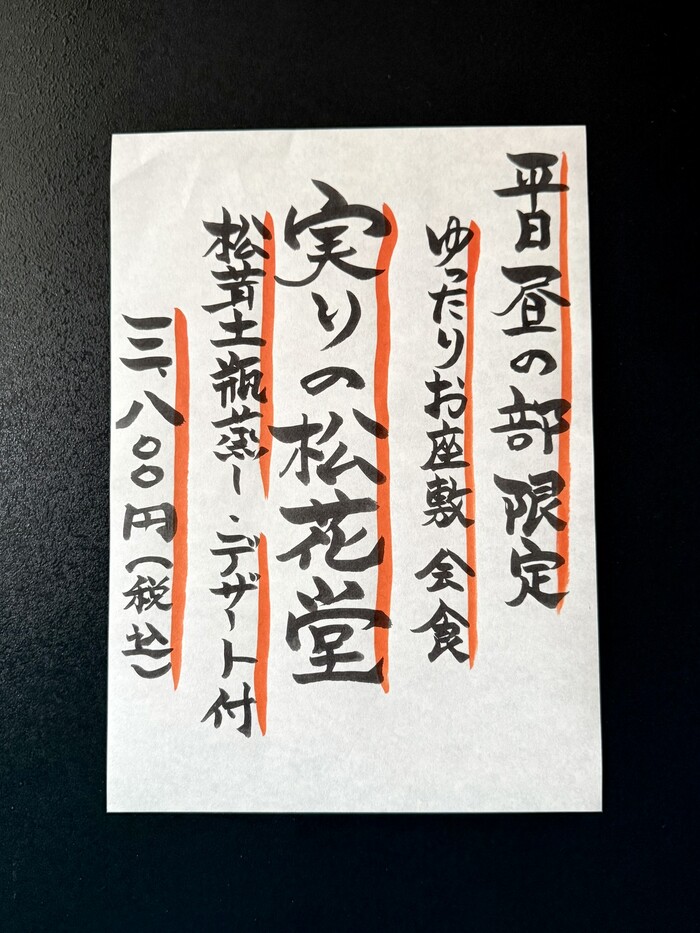 平日昼の部限定
ゆったりお座敷 会食
実りの松花堂
松茸土瓶蒸し・デザート付
三、八〇〇円(税込)